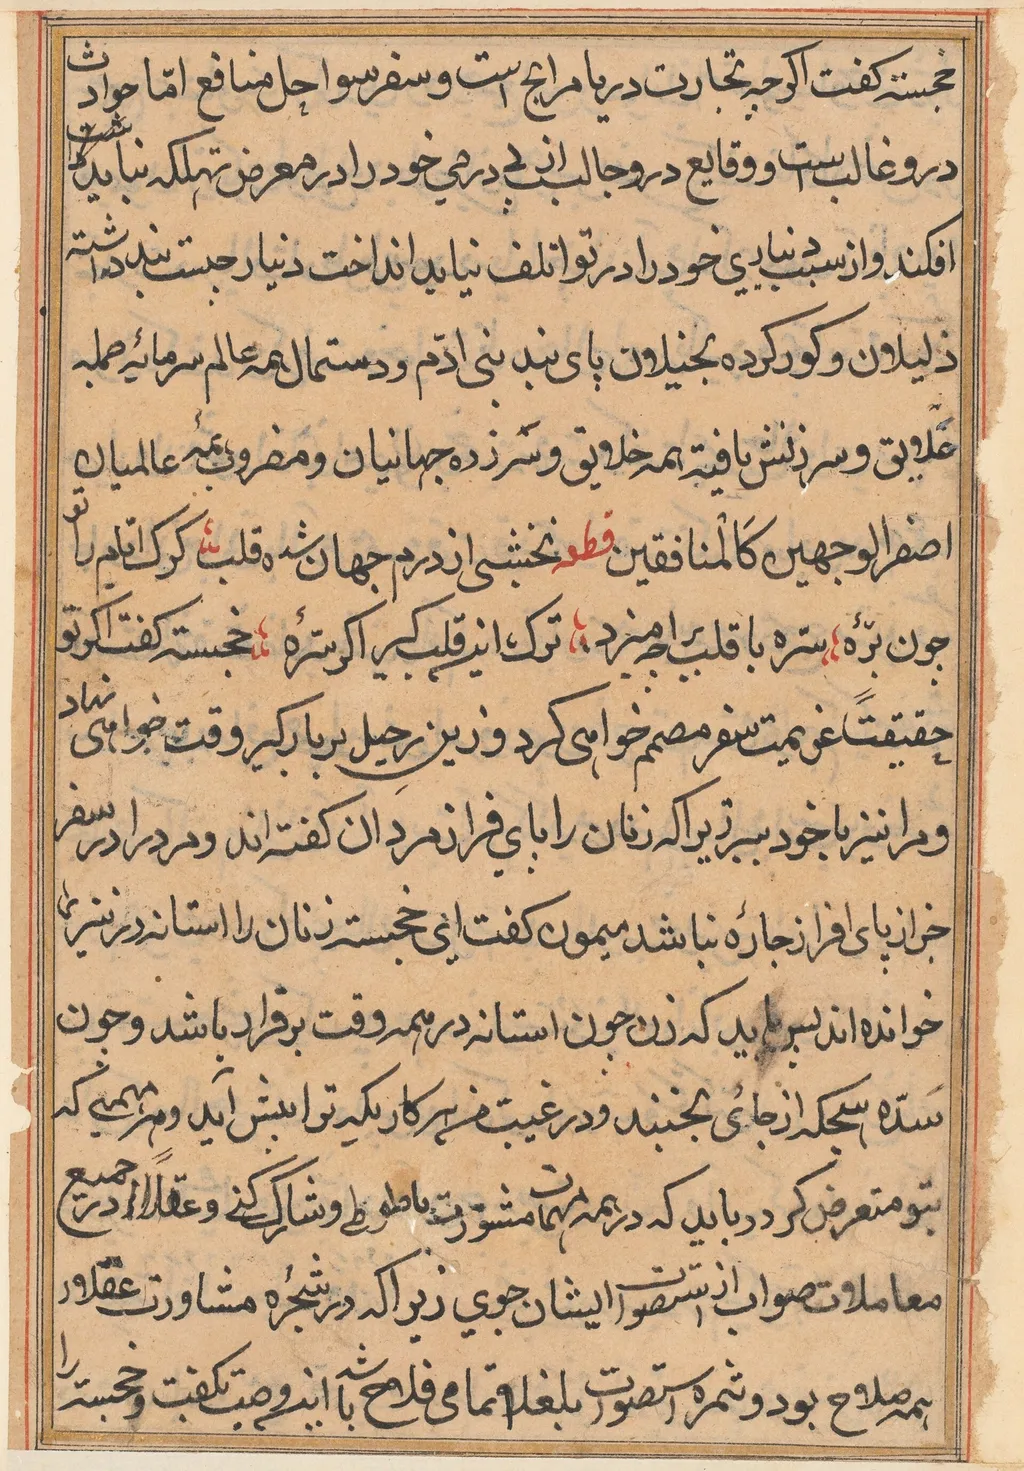 خجسته کفت اکرچه تجارت دریا مرابح است و سفر سواحل منافع امّا حوادث
درو غالب است و وقایع درو جالب از بی درمی خود را در معرض تهلکه نباید
افکند و از سبب دیناری خود را در تواتلف نیاید انداخت دنیار چیست بند داشته
ذلیلان و کور کرده بخیلان پای بند بنی ادّم و دستمال همه عالم سرمایهٔ جمله
علّایق و سرزنش یافتهٔ همه خلایق و سّر زده جهانیان و مضروب همهٔ عالمیان
اصفر الوجهین کَالْمنافقین قطعه نخشبی از درم جهان شد قلب کرک ایام را تو
چون برّهٔ سره با قلب امیزد ترک این قلب کیر اکر سرهٔ خجسته کفت اکر تو
حقیقتاً عزیمت سفر مصمم خواهی کرد و زین رحیل بر بارکیر وقت خواهی نهاد
و مرا نیز با خود ببر زیراکه زنان را پای افراز مردان کفته اند و مرد را در سفر
جز از پای افراز چارهٔ نباشد میمون کفت ای خجسته زنان را استانه در نیز
خوانده اند پس باید که زن چون استانه در همه وقت برقرار باشد و چون
سَدّه هیچکه از جائ نجنبد و در غیبت من هر کاریکه ترا پیش آید و هر مهمی که
بتو متعرض کردد باید که در همه مهمات مشورت با طوطی و شارک کنے و عقلاً در جمیع
معاملات صواب از استصواب ایشان جوی زیراکه در شجرهٔ مشاورت عقلا ور
همه صلاح بود و ثمره استصواب بلغا تمامی فلاح باشد این وصیت بکفت و خجسته را